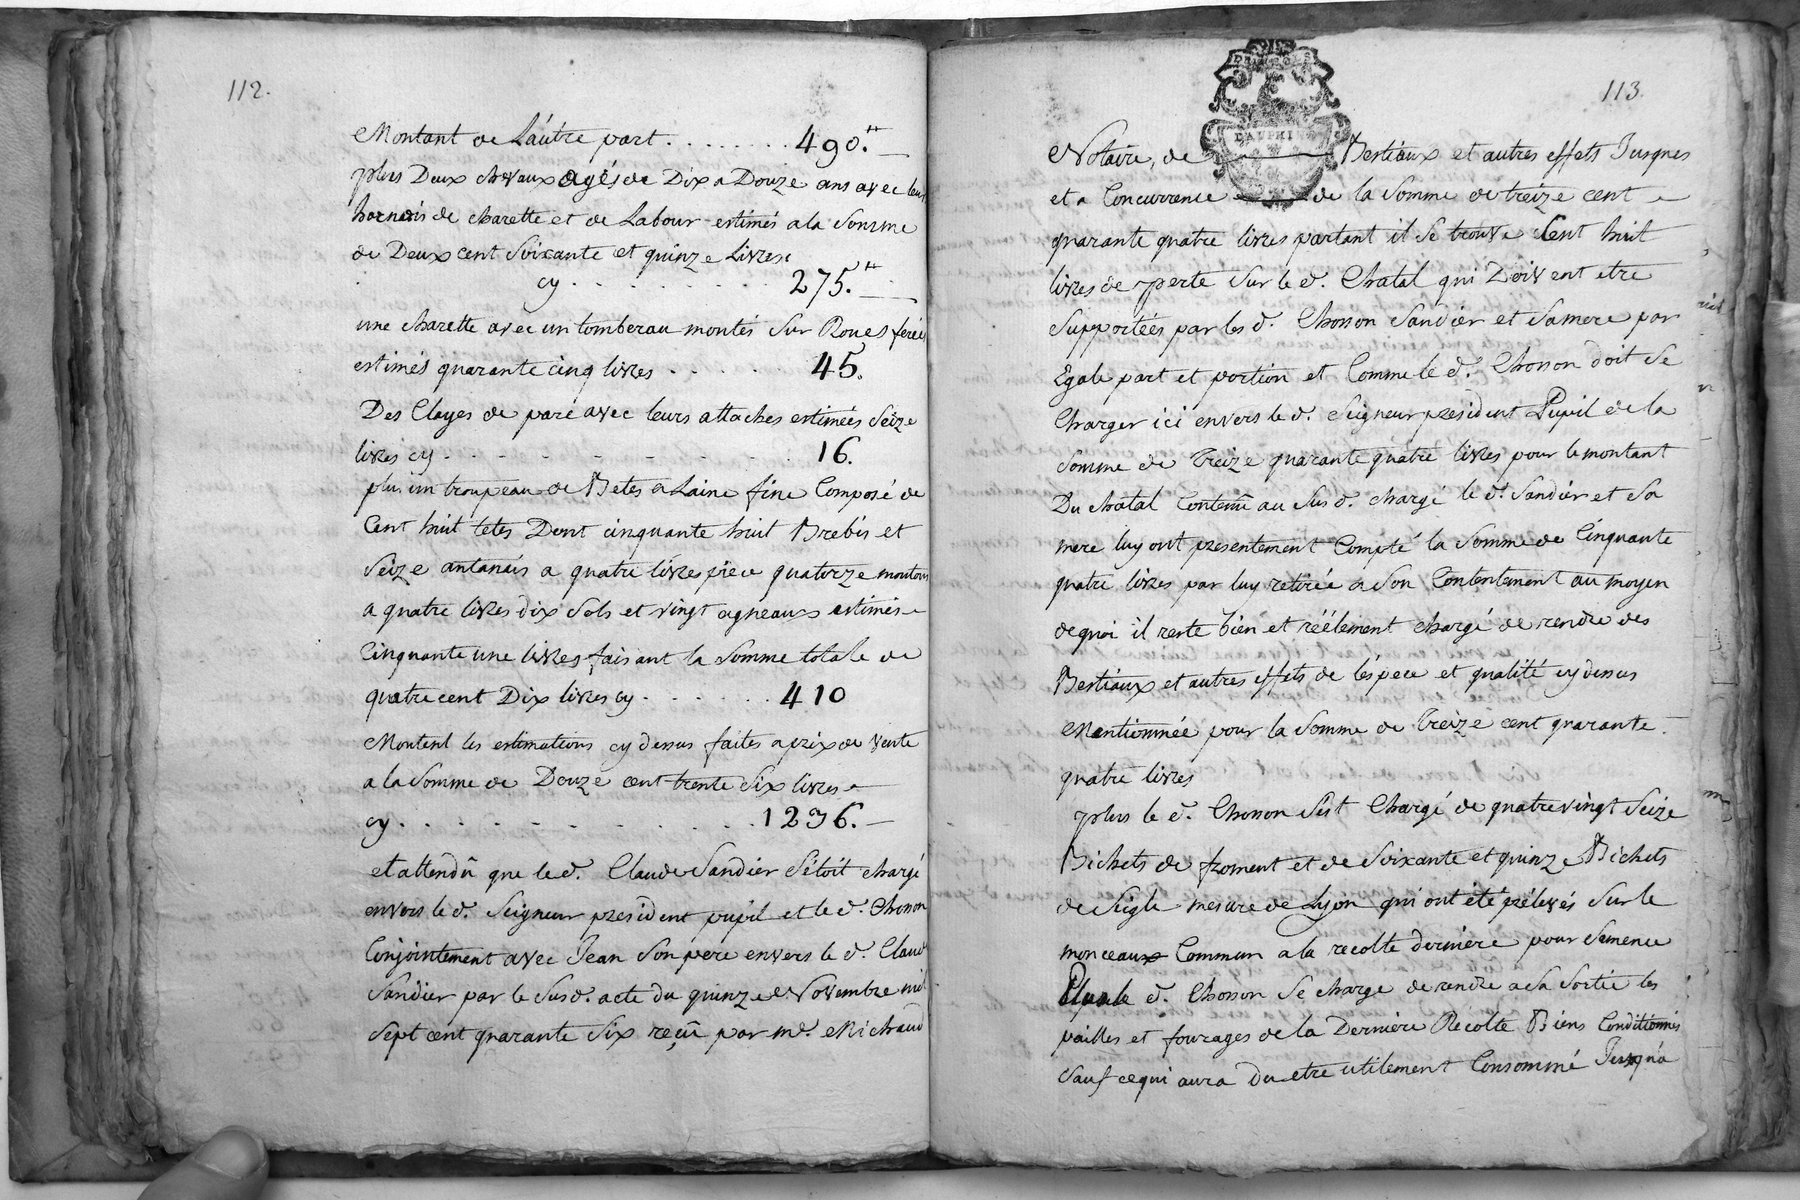 112.
Montant de Lautre part . . . . . . . . 490.tt
plus Deux chevaux agés de Dix a Douze ans avec leur
harnois de charette et de Labour estimés a la Somme
de Deux cent Soixante et quinze Livres
cy . . . . . . . . . . 275.tt
une charette avec un tomberau montés Sur Roues ferées
estimés quarante cinq livres . . . . . . 45.
Des Clayes de parc avec leurs attaches estimées Seize
livres cy . . . . . . . . . . . 16.
plus un troupeau de Betes a Laine fine Composé de
Cent huit tetes Dont cinquante huit Brebis et
Seize antanais a quatre livres piece quatorze moutons
a quatre livres dix Sols et vingt agneaux estimés
Cinquante une livres faisant la Somme totale de
quatre cent Dix livres cy . . . . . . 410
Montent les estimations cy dessus faites a prix de vente
a la Somme de Douze cent trente Six livres
cy . . . . . . . . . . . . 1236.
et attendû que le d. Claude Sandier S'étoit chargé
envers le d. Seigneur president pupil et le d. Chosson
Conjointement avec Jean Son pere envers le d. Claude
Sandier par le Susd. acte du quinze Novembre mil
Sept cent quarante Six reçû par me. Michaud
113.
DAUPHINÉ
Notaire, de Bestiaux et autres effets Jusques
et a Concurrence de la Somme de treize cent
quarante quatre livres partant il Se trouve Cent huit
livres de perte Sur le d. Chatal qui Doivent etre
Supportées par les d. Chosson Sandier et Sa mere par
Egale part et portion et Comme le d. Chosson doit Se
Charger ici envers le d. Seigneur president Pupil de la
Somme de Treize quarante quatre livres pour le montant
Du chatal Contenû au Susd. chargé le d. Sandier et Sa
mere luy ont presentement Compté la Somme de Cinquante
quatre livres par luy retirée a Son Contentement au moyen
de quoi il reste bien et réélement chargé de rendre des
Bestiaux et autres effets de l'éspece et qualité cy dessus
Mentionnée pour la Somme de Treize cent quarante
quatre livres
plus le d. Chosson S'est Chargé de quatre vingt Seize
Bichets de froment et de Soixante et quinze Bichets
de Seigle mesure de Lyon qui ont été prélevés Sur le
monceaux Commun a la recolte derniere pour Semence
Plus le d. Chosson Se charge de rendre a Sa Sortie les
pailles et fourages de la Derniere Recolte Biens Conditionnés
Sauf ce qui aura du etre utilement Consommé Jusqu'a